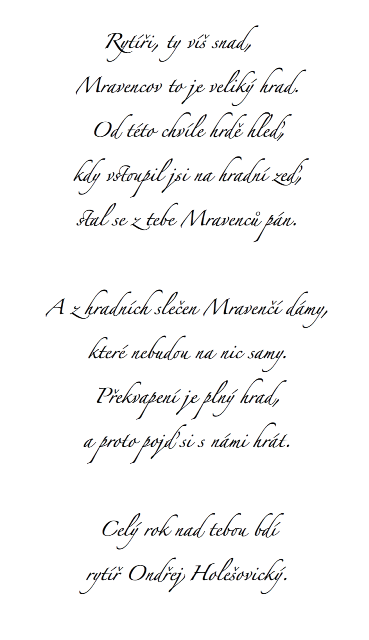 Rytíři, ty víš snad,
Mravencov to je veliký hrad.
Od této chvíle hrdě hleď,
kdy vstoupil jsi na hradní zeď,
stal se z tebe Mravenců pán.
A z hradních slečen Mravenčí dámy,
které nebudou na nic samy.
Překvapení je plný hrad,
a proto pojď si s námi hrát.
Celý rok nad tebou bdí
rytíř Ondřej Holešovický.